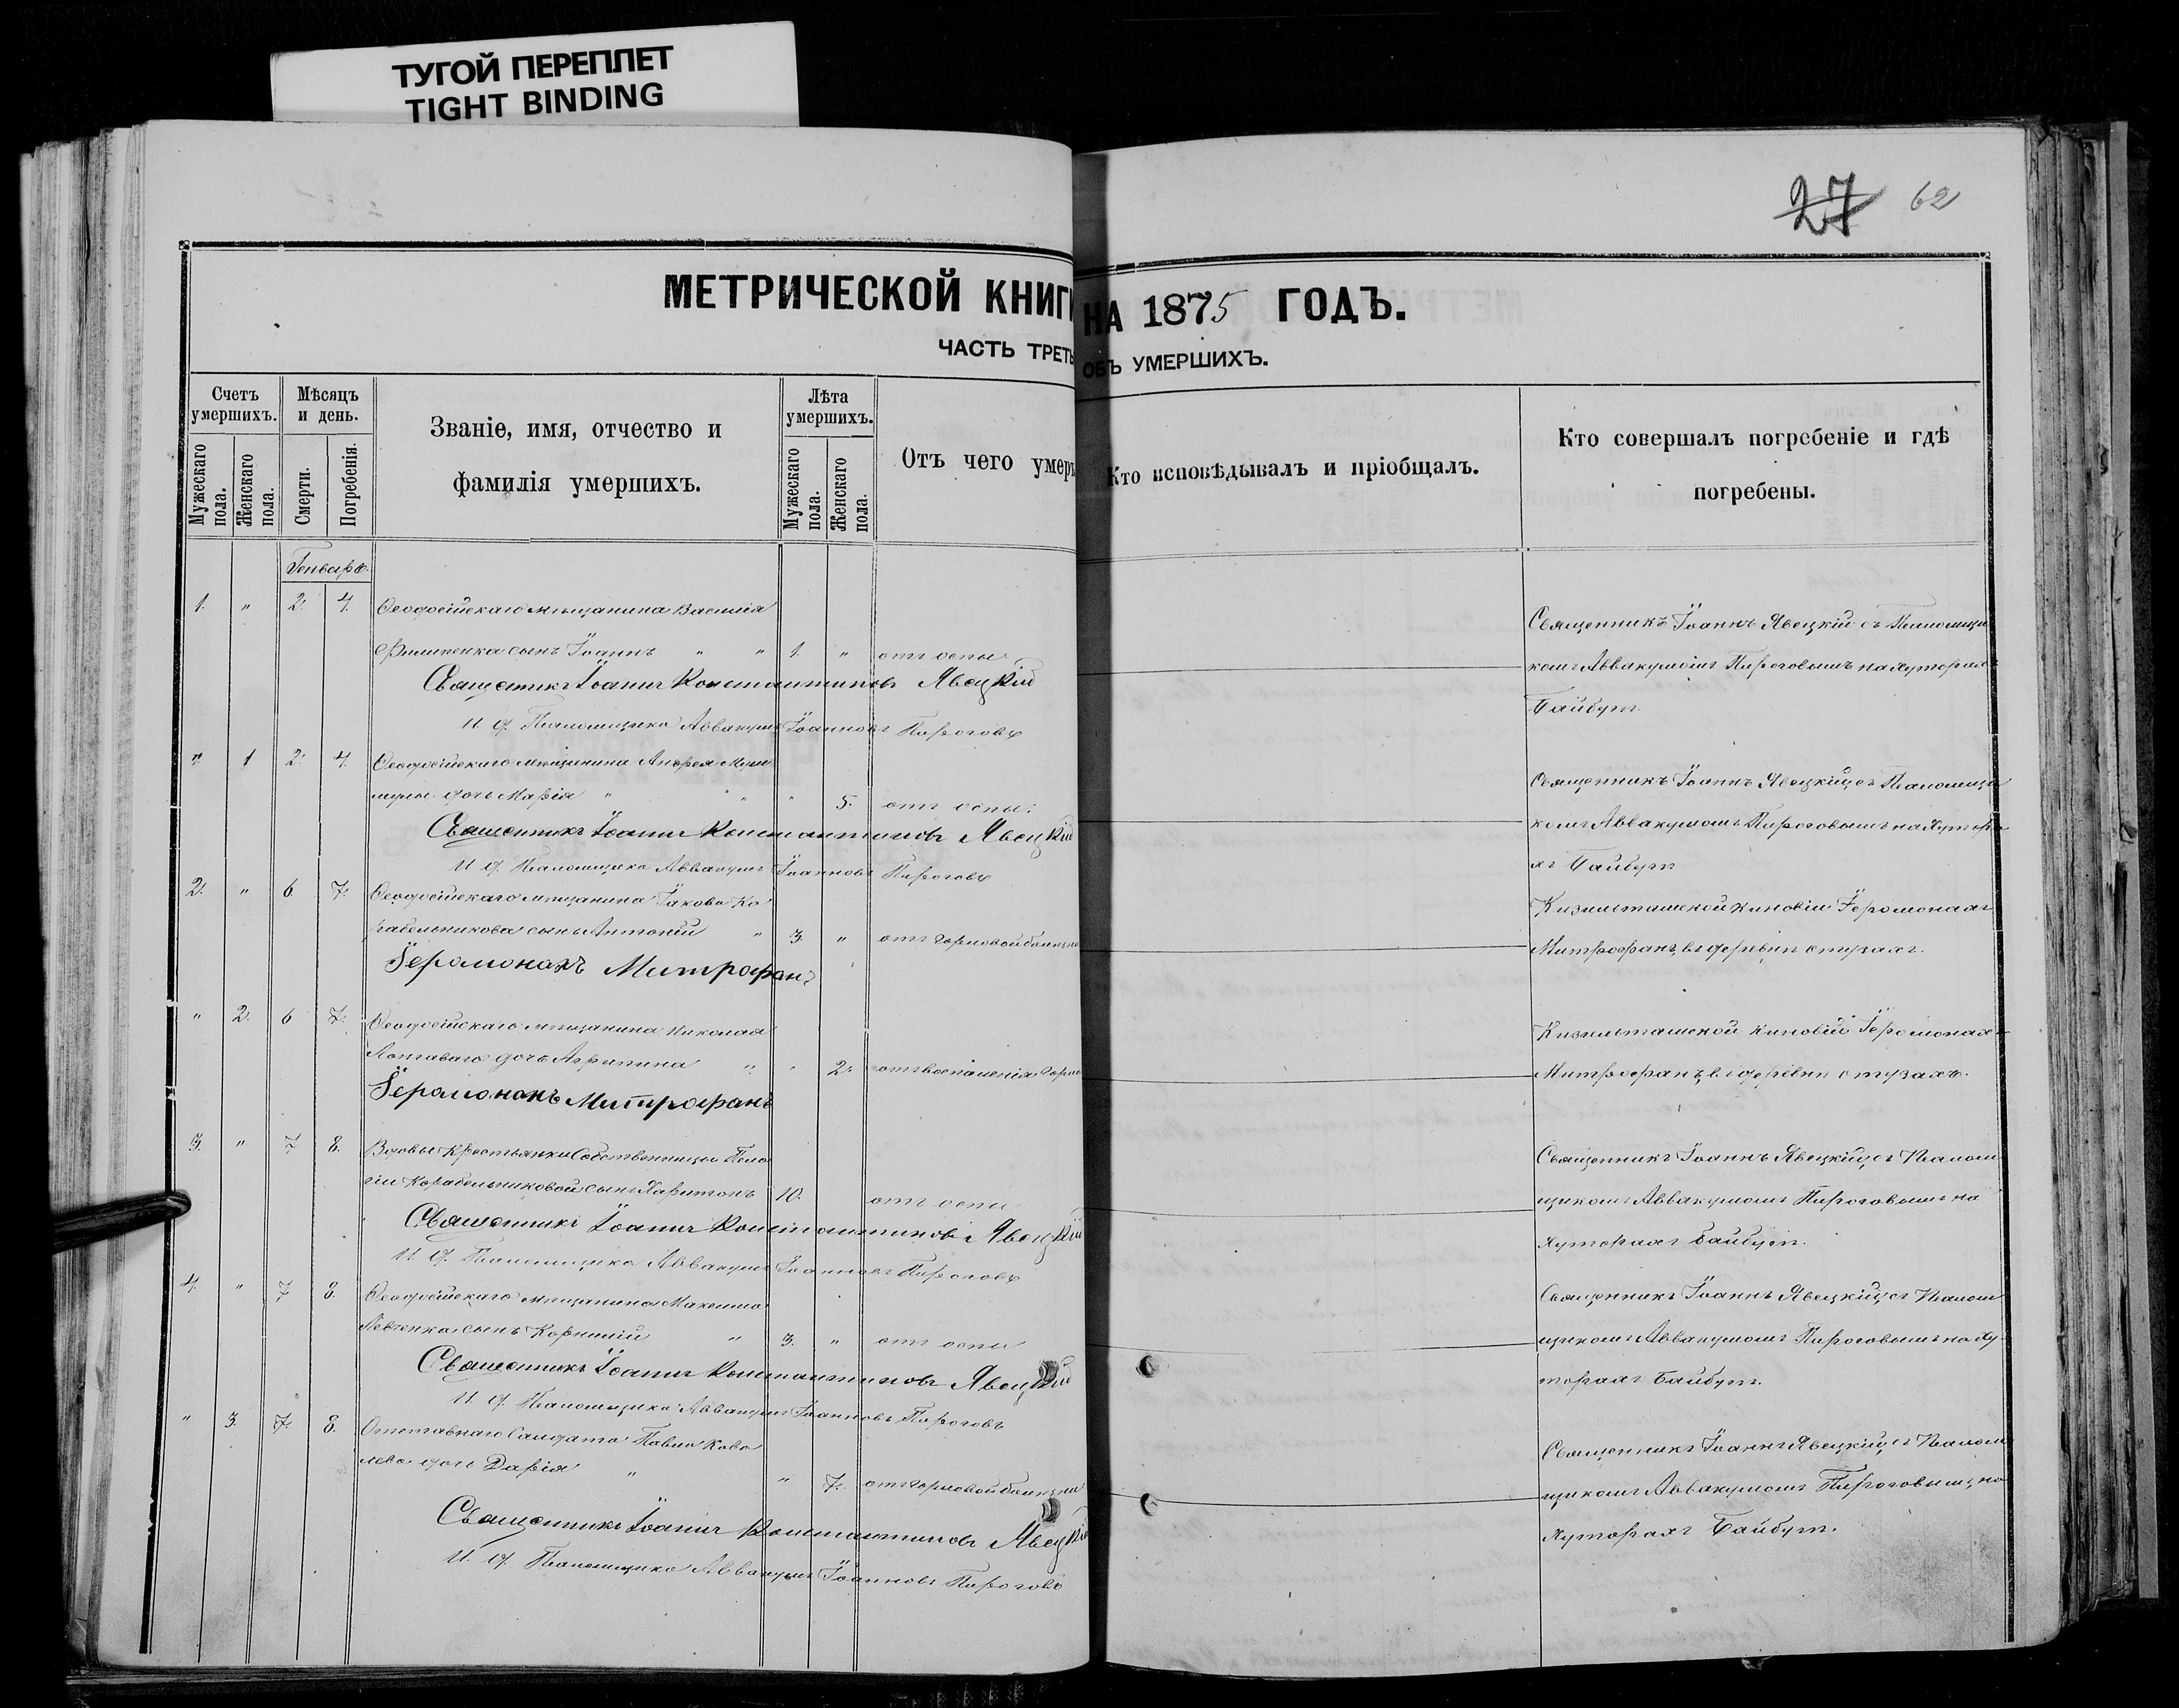 ТУГОЙ ПЕРЕПЛЕТ
TIGHT BINDING
27 62
МЕТРИЧЕСКОЙ КНИГИ НА 1875 ГОДЪ.
ЧАСТЬ ТРЕТЬ ОБЪ УМЕРШИХЪ.
Счетъ умершихъ.
Мужескаго пола.
Женскаго пола.
Мѣсяцъ и день.
Смерти.
Погребенія.
Званіе, имя, отчество и
фамилія умершихъ.
Лѣта умершихъ.
Мужескаго пола.
Женскаго пола.
Отъ чего умеръ
Кто исповѣдывалъ и пріобщалъ.
Кто совершалъ погребеніе и гдѣ
погребены.
Генваря.
1. " 2. 4. Ѳеодосійскаго мѣщанина Василія
сынъ Іоаннъ " " 1. " отъ оспы
Священникъ Іоаннъ Константиновъ Явецкій
И. д. Псаломщика Аввакумъ Іоанновъ Пироговъ
Священникъ Іоаннъ Явецкій съ Псаломщи
комъ Аввакумомъ Пироговымъ на хуторахъ
Байбугъ.
" 1 2. 4. Ѳеодосійскаго мѣщанина Андрея
дочь Марія " " " 5. отъ оспы.
Священникъ Іоаннъ Константиновъ Явецкій
И. д. Псаломщика Аввакумъ Іоанновъ Пироговъ
Священникъ Іоаннъ Явецкій съ Псаломщи
комъ Аввакумомъ Пироговымъ на Хутора
хъ Байбугъ
2. " 6 7. Ѳеодосійскаго мѣщанина Іакова Ко
рабельникова сынъ Антоній " 3. " отъ горловой болѣзни
Іеромонахъ Митрофанъ
Кизилташской Киновіи Іеромонахъ
Митрофанъ, въ деревнѣ отузахъ.
" 2. 6 7. Ѳеодосійскаго мѣщанина Николая
дочь Агрипина " " 2. отъ воспаленія горла
Іеромонахъ Митрофанъ
Кизилташской Киновіи Іеромонахъ
Митрофанъ, въ деревнѣ отузахъ.
3. " 7 8. Вдовы Крестьянки Собственницы Пела
гіи Корабельниковой сынъ Харитонъ 10. отъ оспы
Священникъ Іоаннъ Константиновъ Явецкій
И. д. Псаломщика Аввакумъ Іоанновъ Пироговъ
Священникъ Іоаннъ Явецкій, съ Псалом
щикомъ Аввакумомъ Пироговымъ на
Хуторахъ Байбугъ.
4. " 7 8. Ѳеодосійскаго мѣщанина Максима
Левченка сынъ Корнилій " 3. " отъ оспы
Священникъ Іоаннъ Константиновъ Явецкій
И. д. Псаломщика Аввакумъ Іоанновъ Пироговъ
Священникъ Іоаннъ Явецкій, съ Псалом
щикомъ Аввакумомъ Пироговымъ на Ху
торахъ Байбугъ.
" 3. 7. 8. Отставнаго Солдата Павла Кова
лева дочь Дарія " " 7. отъ горловой болѣзни
Священникъ Іоаннъ Константиновъ Явецкій
И. д. Псаломщика Аввакумъ Іоанновъ Пироговъ
Священникъ Іоаннъ Явецкій, съ Псалом
щикомъ Аввакумомъ Пироговымъ, на
Хуторахъ Байбугъ.